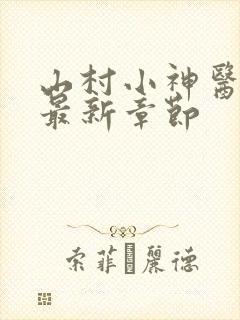 山村小神醫
最新章節
索菲麗德